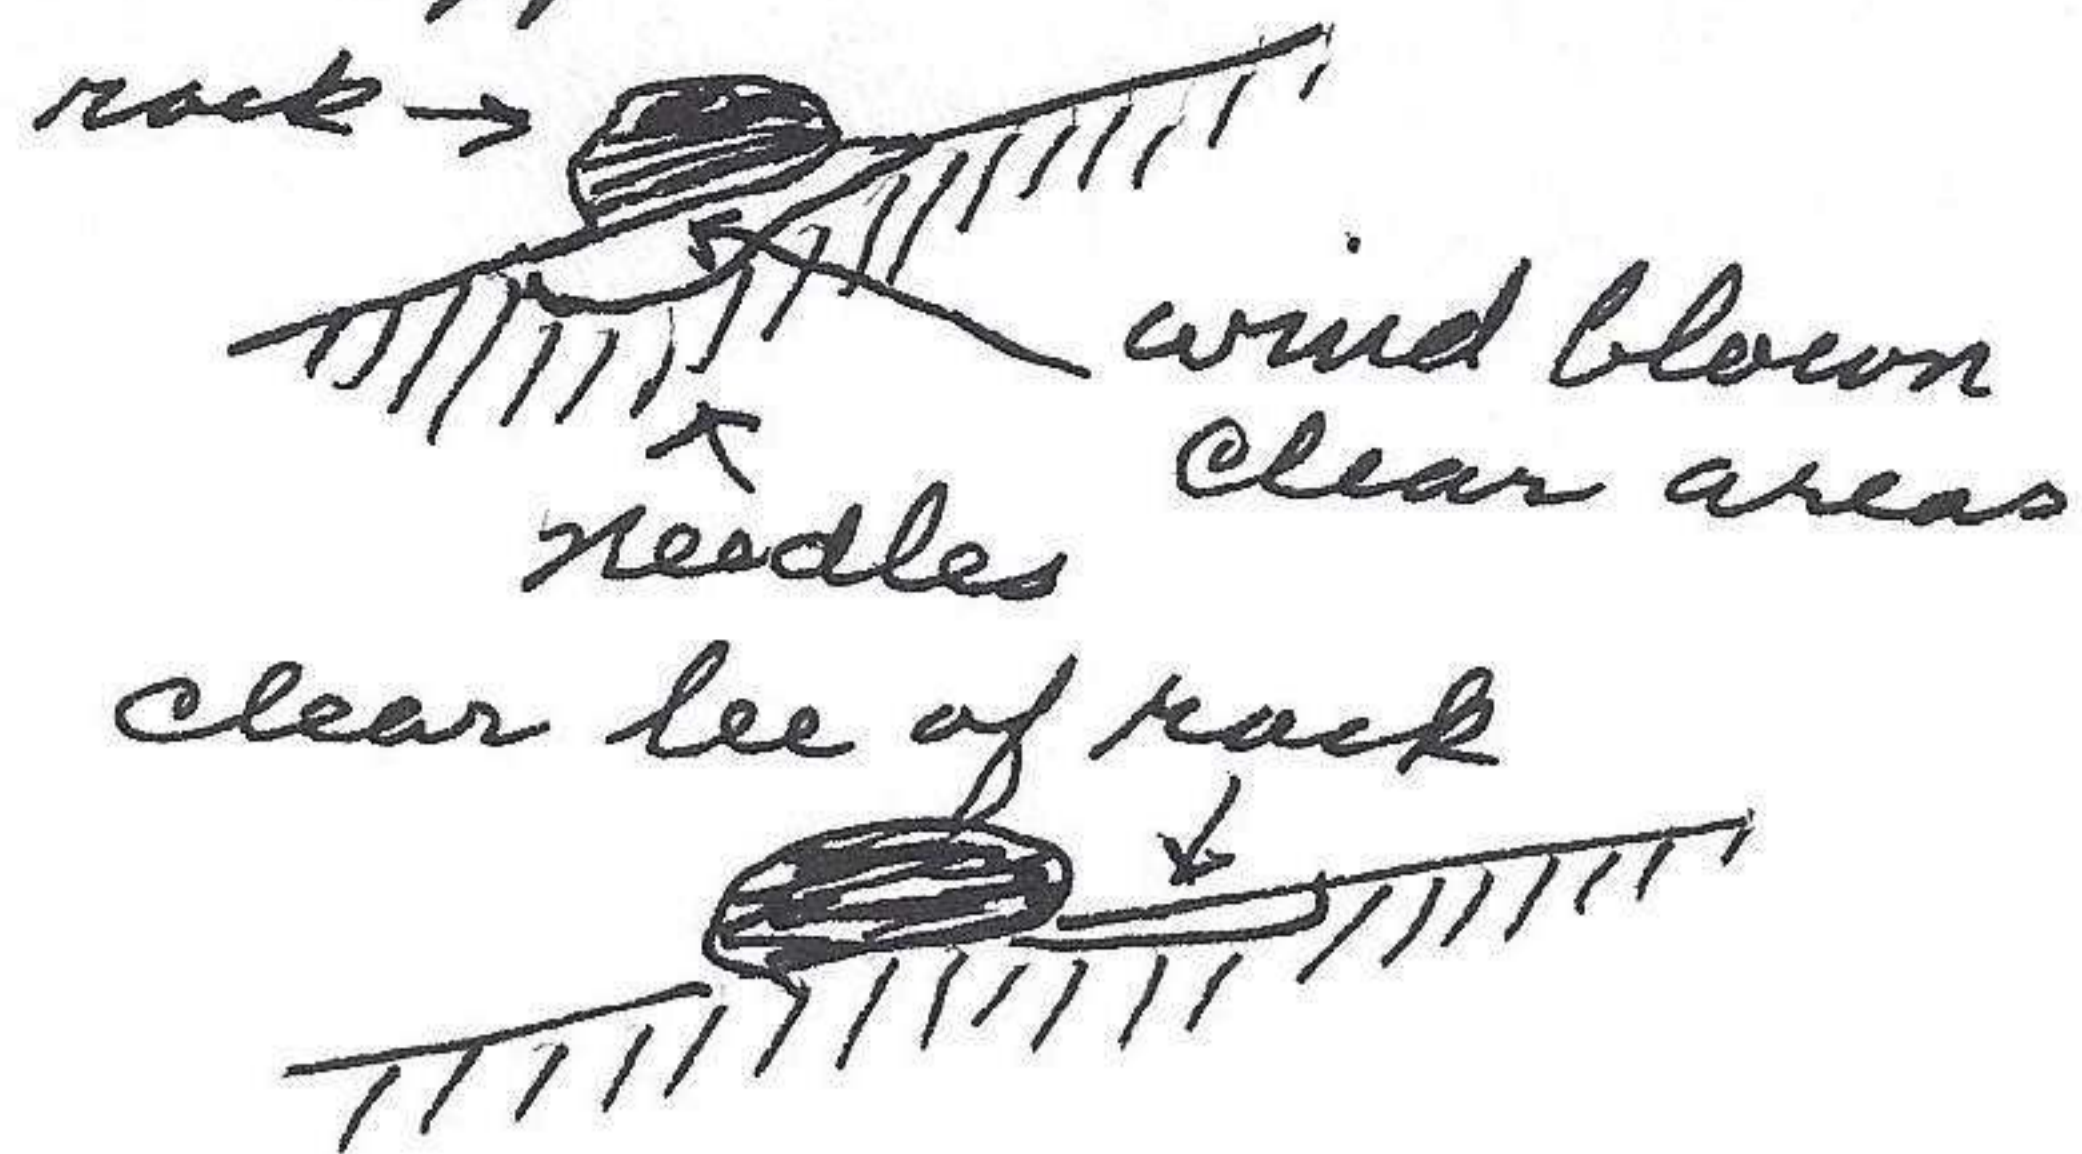 rock →
wind blown
clear areas
needles
clear lee of rock